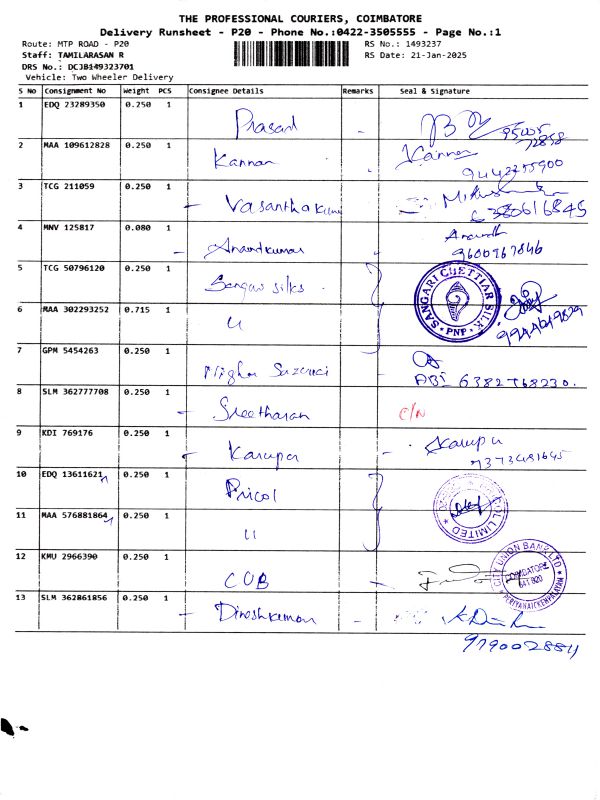 THE PROFESSIONAL COURIERS, COIMBATORE
Delivery Runsheet - P20 - Phone No.:0422-3505555 - Page No.:1
Route: MTP ROAD - P20 RS No.: 1493237
Staff: TAMILARASAN R RS Date: 21-Jan-2025
DRS No.: DCJB149323701
Vehicle: Two Wheeler Delivery
S No Consignment No Weight PCS Consignee Details Remarks Seal & Signature
1 EDQ 23289350 0.250 1 Prasad
2 MAA 109612828 0.250 1 Kannan Kannan
3 TCG 211059 0.250 1 Vasanthakumar
4 MNV 125817 0.080 1 Anandkumar 9600767846
5 TCG 50796120 0.250 1 silks SANGARI CHETTIAR SILK PNP
6 MAA 302293252 0.715 1 u
7 GPM 5454263 0.250 1 ABI 6382768230.
8 SLM 362777708 0.250 1 Sreetharan C/N
9 KDI 769176 0.250 1 Karupu Karupu
10 EDQ 13611621 0.250 1 Pricol LIMITED
11 MAA 576881864 0.250 1 u
12 KMU 2966390 0.250 1 CUB CITY UNION BANK LTD COIMBATORE 641 020 PERIYANAICKENPALAYAM
13 SLM 362861856 0.250 1 Dineshkumar
9790028811